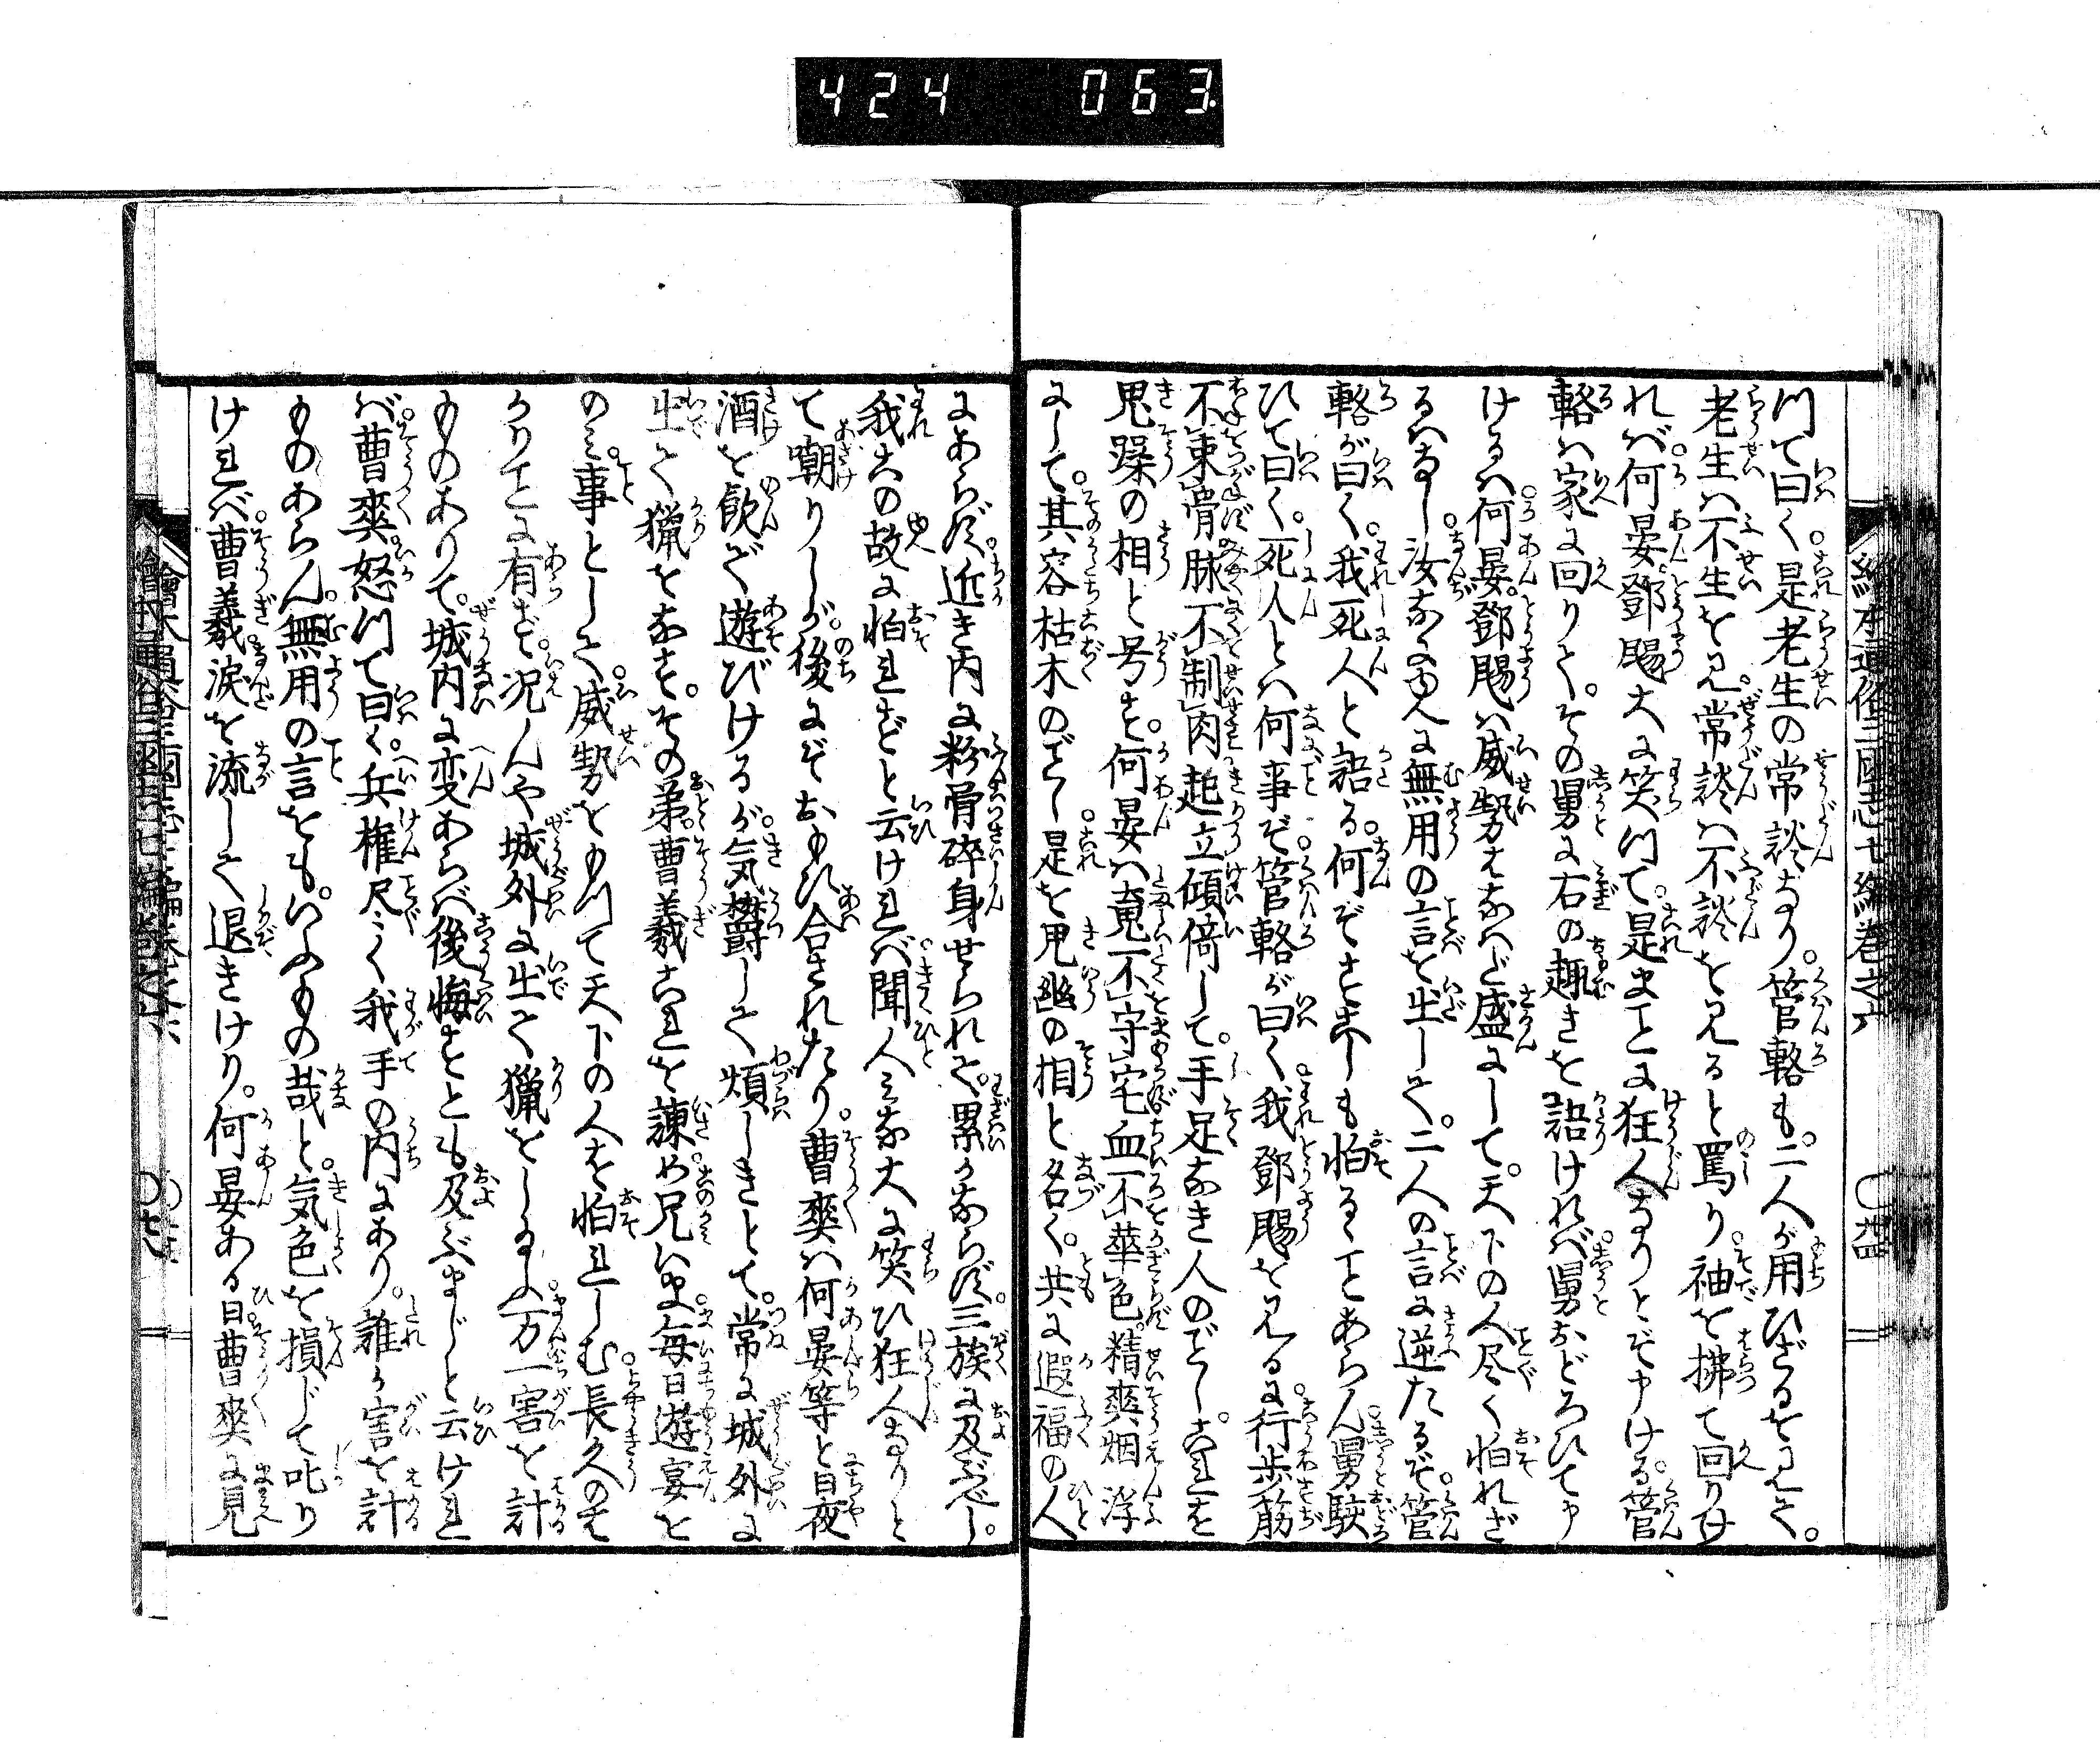 424 063
繪本通俗三國志七編卷之六
川て曰く是老生の常談なり。管輅も。二人が用ひざるを見て。
老生は不生を見。常談は不談を見ると罵り。袖を拂て回りけ
れば。何晏。鄧颺大に笑つて。是まことに狂人なりとぞ申ける。管
輅は家に回りて。その舅に右の趣きを語りければ。舅おどろひて申
けるは。何晏。鄧颺は威勢さかんに盛にして。天下の人尽く怕れざ
るはなし。汝なんのゆへに無用の言を出して。二人の言に逆たるぞ。管
輅が曰く。我死人と語る。何ぞすこしも怕るゝことあらん。舅駭
ひて曰く。死人とは何事ぞ。管輅が曰く。我鄧颺を見るに。行歩筋
不束骨脉不制肉起立傾倚して。手足なき人のごとし。これを
鬼躁の相と号す。何晏は魂不守宅血不華色精爽烟浮
にして。其容枯木のごとし。是を鬼幽の相と名く。共に遐福の人
にあらず。近き内に粉骨碎身せられて。累かならず三族に及ぶべし。
我この故に怕れずと云ければ。聞人みな大に笑ひ狂人なりと
て嘲りしが。後にぞおもひ合されたり。曹爽は何晏等と日夜
酒を飲で遊びけるが。気欝して煩しきとて。常に城外に
出て獵をなす。その弟曹羲これを諫め。兄いま毎日遊宴を
のミ事として。威勢をもつて天下の人を怕れしむ。長久のは
かりことに有ず。况んや城外に出て獵をし給ふ。万一害を計
ものありて。城内に変あらば後悔すとも及ぶまじと云けれ
ば。曹爽怒つて曰く。兵権尽く我手の内にあり。誰か害を計
ものあらん。無用の言をもいふもの哉と。気色を損じて叱り
ければ。曹羲涙を流して退きけり。何晏ある日。曹爽に見